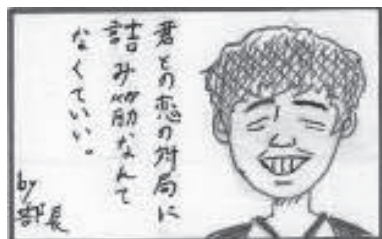 君との恋の対局に
詰み筋なんて
なくていい。
by
部長